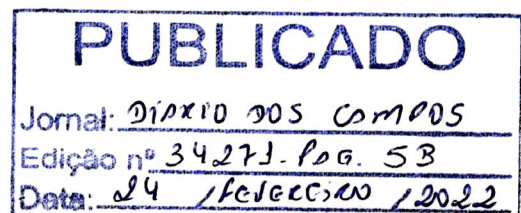 PUBLICADO
Jornal: DIÁRIO DOS CAMPOS
Edição nº 34.271. PÁG. 5B
Data: 24 / FEVEREIRO / 2022